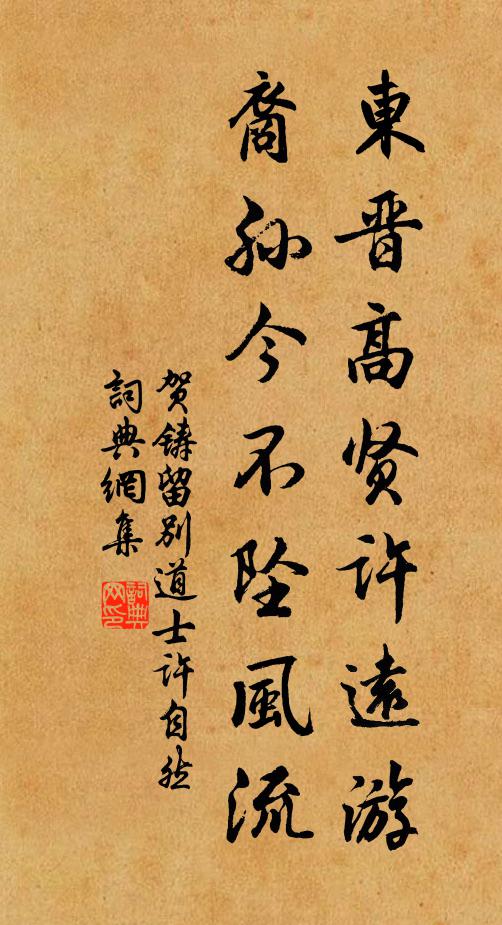 東晋高贤許遠游
裔孙今不坠風流
贺鑄留别道士許自然
詞典網集
詞典网印